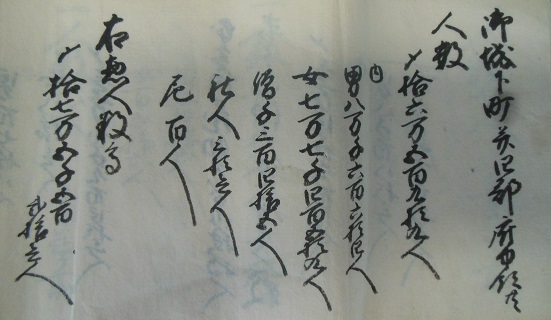 御城下町并四郡府中領共
人数
〆拾六万五百九拾九人
内
男八万千六百六拾四人
女七万七千四百五拾九人
僧千三百四拾五人
社人三拾壱人
尼百人
右惣人数高
〆拾七万五千五百
弐拾壱人